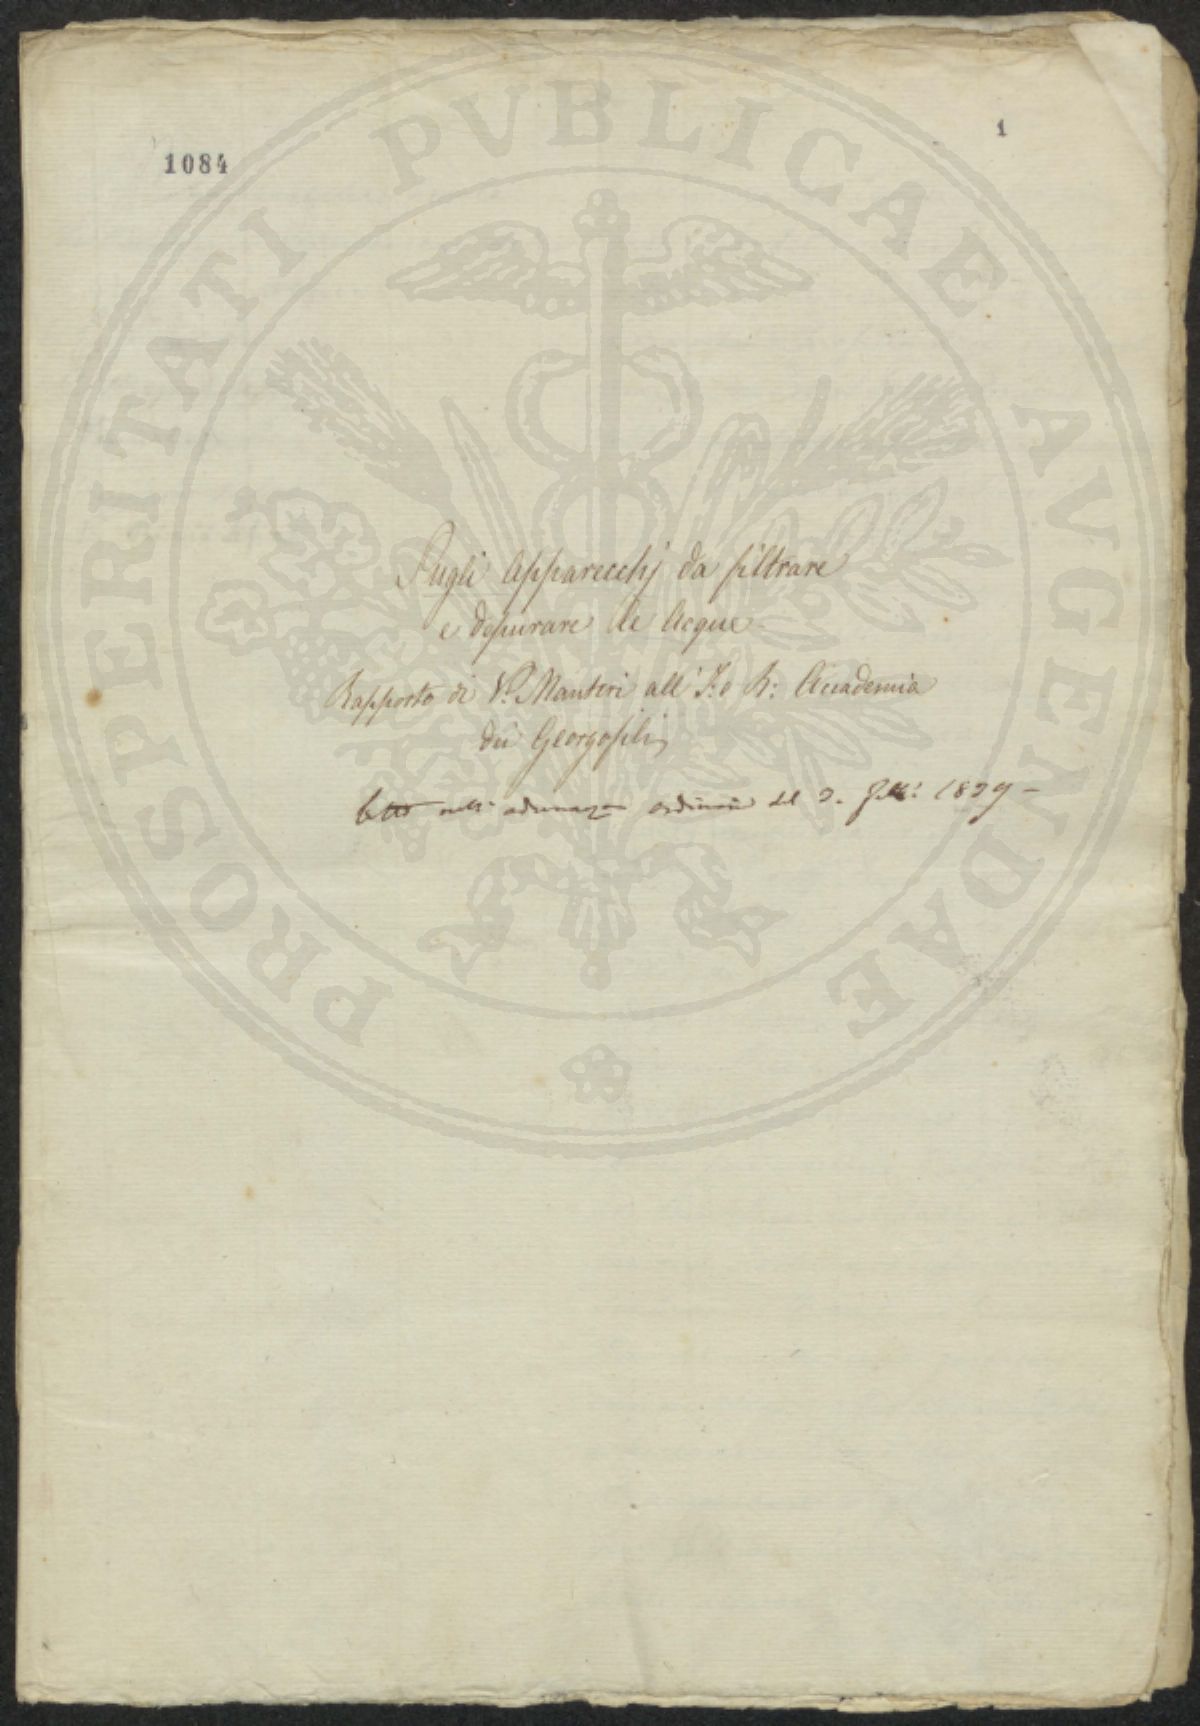 1084
1
PROSPERITATI PVBLICAE AVGENDAE
Sugli Apparecchj da filtrare
e depurare le Acque
Rapporto di V. Manteri all' I. e R: Accademia
dei Georgofili
letto nell' adunanza ordinaria del 3. 1839 -